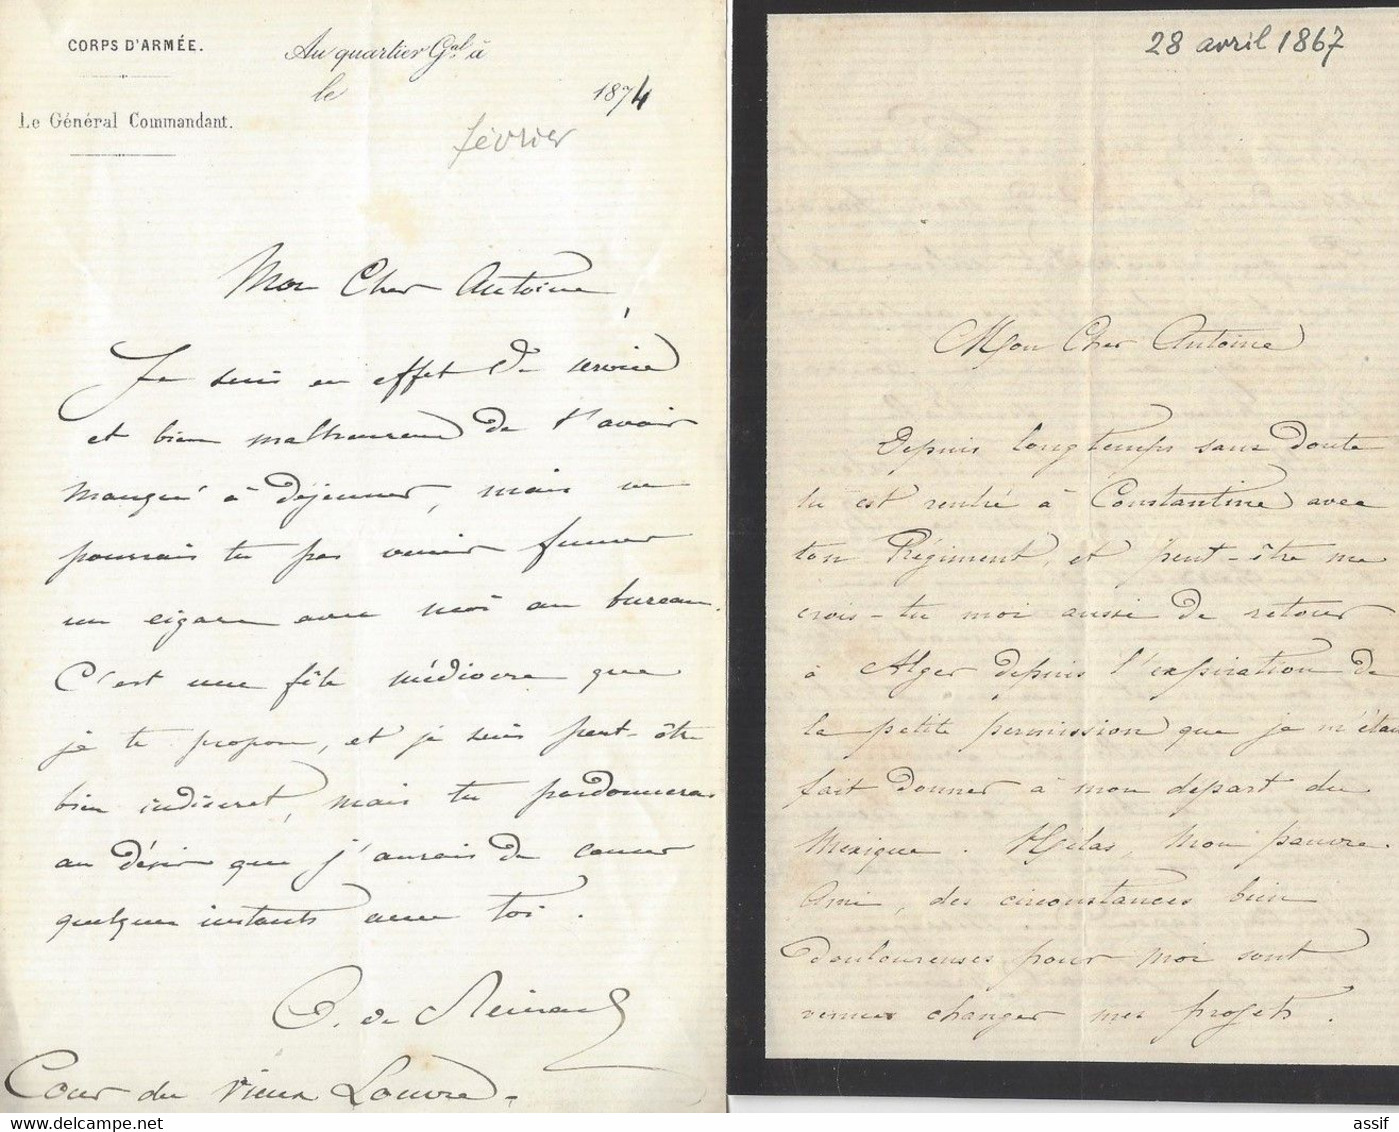 CORPS D'ARMÉE.
Le Général Commandant.
Au quartier Gal à
le 1874
février
Mon Cher Antoine,
Je suis en effet de service
et bien malheureux de t'avoir
manqué à déjeuner, mais ne
pourrais tu pas venir fumer
un cigare avec moi au bureau.
C'est une fête médiocre que
je te propose, et je suis peut-être
bien indiscret, mais tu pardonneras
au désir que j'aurais de causer
quelques instants avec toi.
de
Cour du vieux Louvre.
28 avril 1867
Mon Cher Antoine
Depuis longtemps sans doute
tu est rentré à Constantine avec
ton Régiment, et peut-être me
crois-tu moi aussi de retour
à Alger depuis l'expiration de
la petite permission que je m'étais
fait donner à mon départ du
Mexique. Hélas, mon pauvre
Ami, des circonstances bien
douloureuses pour moi sont
venues changer mes projets.
assif